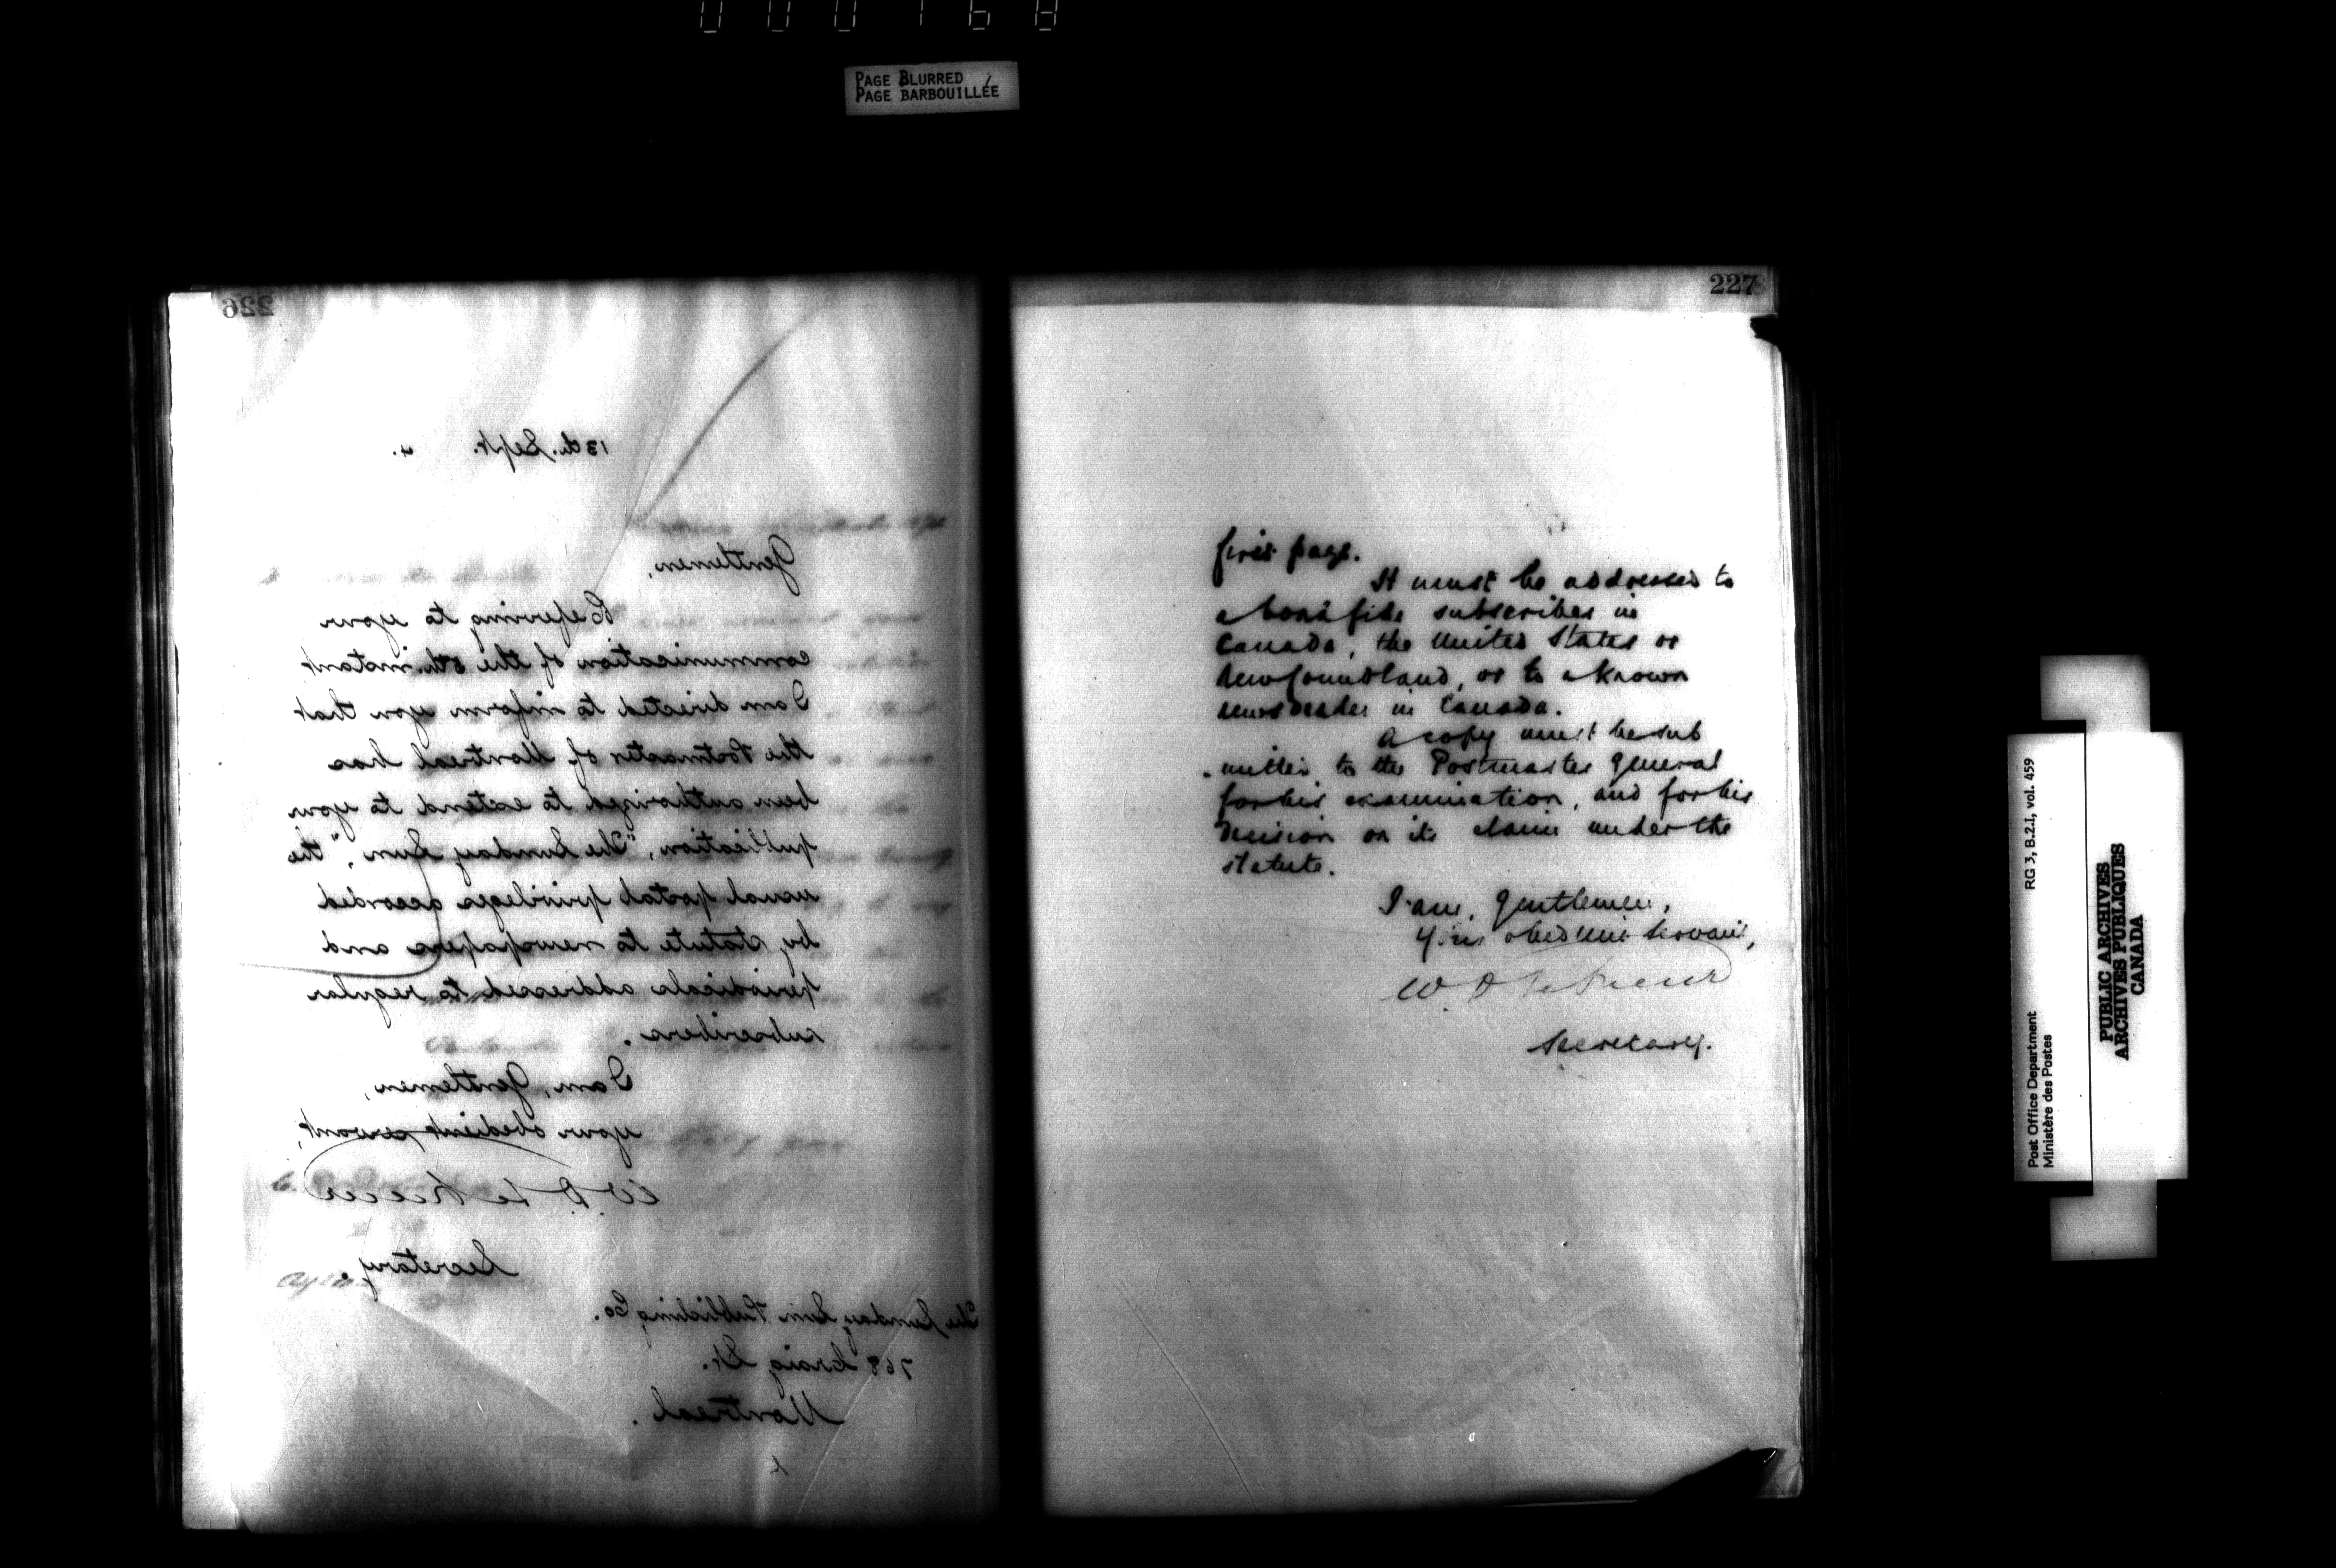 000168
PAGE BLURRED
PAGE BARBOUILLÉE
226
13th. Sept. 4.
Gentlemen,
Referring to your
communication of the 8th. instant
I am directed to inform you that
the Postmaster of Montreal has
been authorized to extend to you
publication, "The Sunday Sun", the
usual postal privileges accorded
by statute to newspapers and
periodicals addressed to regular
subscribers.
I am, Gentlemen,
your obedient servant,
W. D. Le Sueur
Secretary.
The Sunday Sun Publishing Co.
768 Craig St.
Montreal.
227
first page.
It must be addressed to
a bonâ fide subscriber in
Canada, the United States or
Newfoundland, or to a known
newsdealer in Canada.
A copy must be sub
-mitted to the Postmaster General
for his examination, and for his
decision on its claim under the
statute.
I am, gentlemen,
Your obedient servant,
W. D. Le Sueur
Secretary.
RG 3, B.2.I, vol. 459
Post Office Department
Ministère des Postes
PUBLIC ARCHIVES
ARCHIVES PUBLIQUES
CANADA